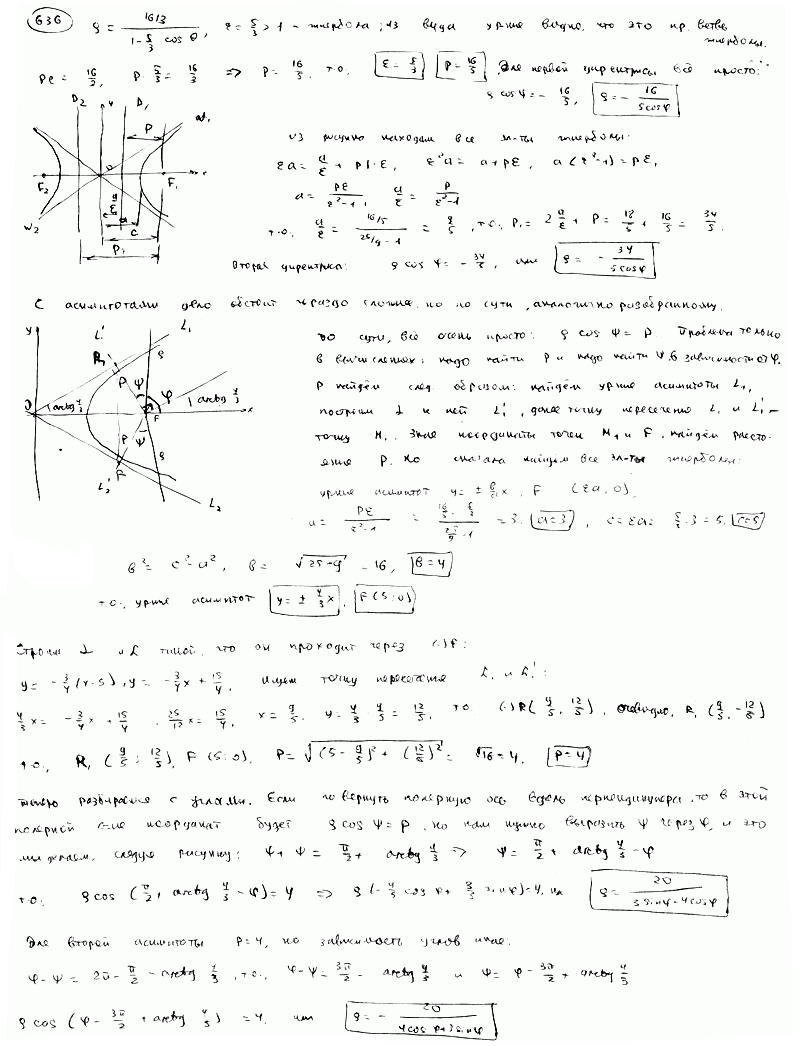 636 ρ = 16/3 / (1 - 5/3 cos θ), ε = 5/3 > 1 - гипербола; из вида ур-ния видно, что это пр. ветвь гиперболы.
pε = 16/3, p · 5/3 = 16/3 => p = 16/5, т.о. ε = 5/3 p = 16/5. Для первой директрисы всё просто:
ρ cos φ = - 16/5, ρ = - 16/(5cosφ)
D2 y D1
p
F2 F1
a
c
P1
из рисунка находим все эл-ты гиперболы:
εa = a/ε + p, | · ε, ε²a = a + pε, a(ε²-1) = pε,
a = pε/(ε²-1), a/ε = p/(ε²-1)
т.о. a/ε = 16/5 / (25/9 - 1) = 9/5, т.о. P1 = 2 a/ε + p = 18/5 + 16/5 = 34/5.
Вторая директриса: ρ cos φ = - 34/5, или ρ = - 34/(5cosφ)
С асимптотами дело обстоит гораздо сложнее, но по сути, аналогично разобранному.
y L1' L1
R1 ρ
arctg 4/3 P ψ φ arctg 4/3
O F x
P ψ
ρ
L2' L2
По сути, всё очень просто: ρ cos ψ = P. Проблема только
в вычислениях: надо найти P и надо найти ψ в зависимости от φ.
P найдём след. образом: найдём ур-ние асимптоты L1,
построим ⊥ к ней L1', далее точку пересечения L1 и L1' -
точку M1. Зная координаты точек M1 и F, найдём расстояние
P. Но сначала найдём все эл-ты гиперболы:
ур-ние асимптот y = ± в/a x, F (εa, 0),
a = pε/(ε²-1) = 16/5 · 5/3 / (25/9 - 1) = 3. a=3, c = εa = 5/3 · 3 = 5. c=5
в² = c² - a², в = √(25-9) = 16, в=4
т.о. ур-ние асимптот y = ± 4/3 x, F(5;0)
Строим ⊥ к L такой, что он проходит через (·)F:
y = - 3/4 (x-5), y = - 3/4 x + 15/4. Ищем точку пересечения L1 и L1':
4/3 x = - 3/4 x + 15/4, 25/12 x = 15/4, x = 9/5, y = 4/3 · 9/5 = 12/5, то (·)R( 9/5, 12/5 ), очевидно, R1 ( 9/5, -12/5 )
т.о. R1 ( 9/5 ; 12/5 ), F (5;0), P = √((5 - 9/5)² + (12/5)²) = √16 = 4, P=4
теперь разбираемся с углами. Если повернуть полярную ось вдоль перпендикуляра, то в этой
полярной с-ме координат будет ρ cos ψ = P, но нам нужно выразить ψ через φ, и это
мы делаем, следуя рисунку: φ + ψ = π/2 + arctg 4/3 => ψ = π/2 + arctg 4/3 - φ
т.о. ρ cos ( π/2 + arctg 4/3 - φ) = 4 => ρ (- 4/5 cos φ + 3/5 sin φ) = 4, или ρ = 20/(3 sinφ - 4 cosφ)
Для второй асимптоты P=4, но зависимость углов иная:
φ - ψ = 2π - π/2 - arctg 4/3, т.о. φ - ψ = 3π/2 - arctg 4/3 и ψ = φ - 3π/2 + arctg 4/3
ρ cos ( φ - 3π/2 + arctg 4/3 ) = 4, или ρ = - 20/(4cos φ + 3sinφ)